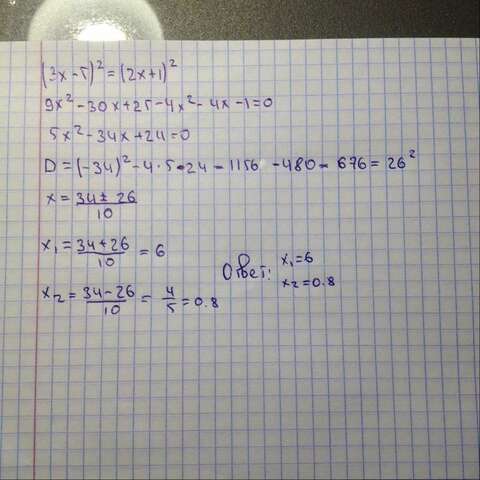 (3x-5)²=(2x+1)²
9x²-30x+25-4x²-4x-1=0
5x²-34x+24=0
D=(-34)²-4·5·24=1156-480=676=26²
x=34±26/10
x₁=34+26/10=6
x₂=34-26/10=4/5=0.8
Ответ: x₁=6
x₂=0.8